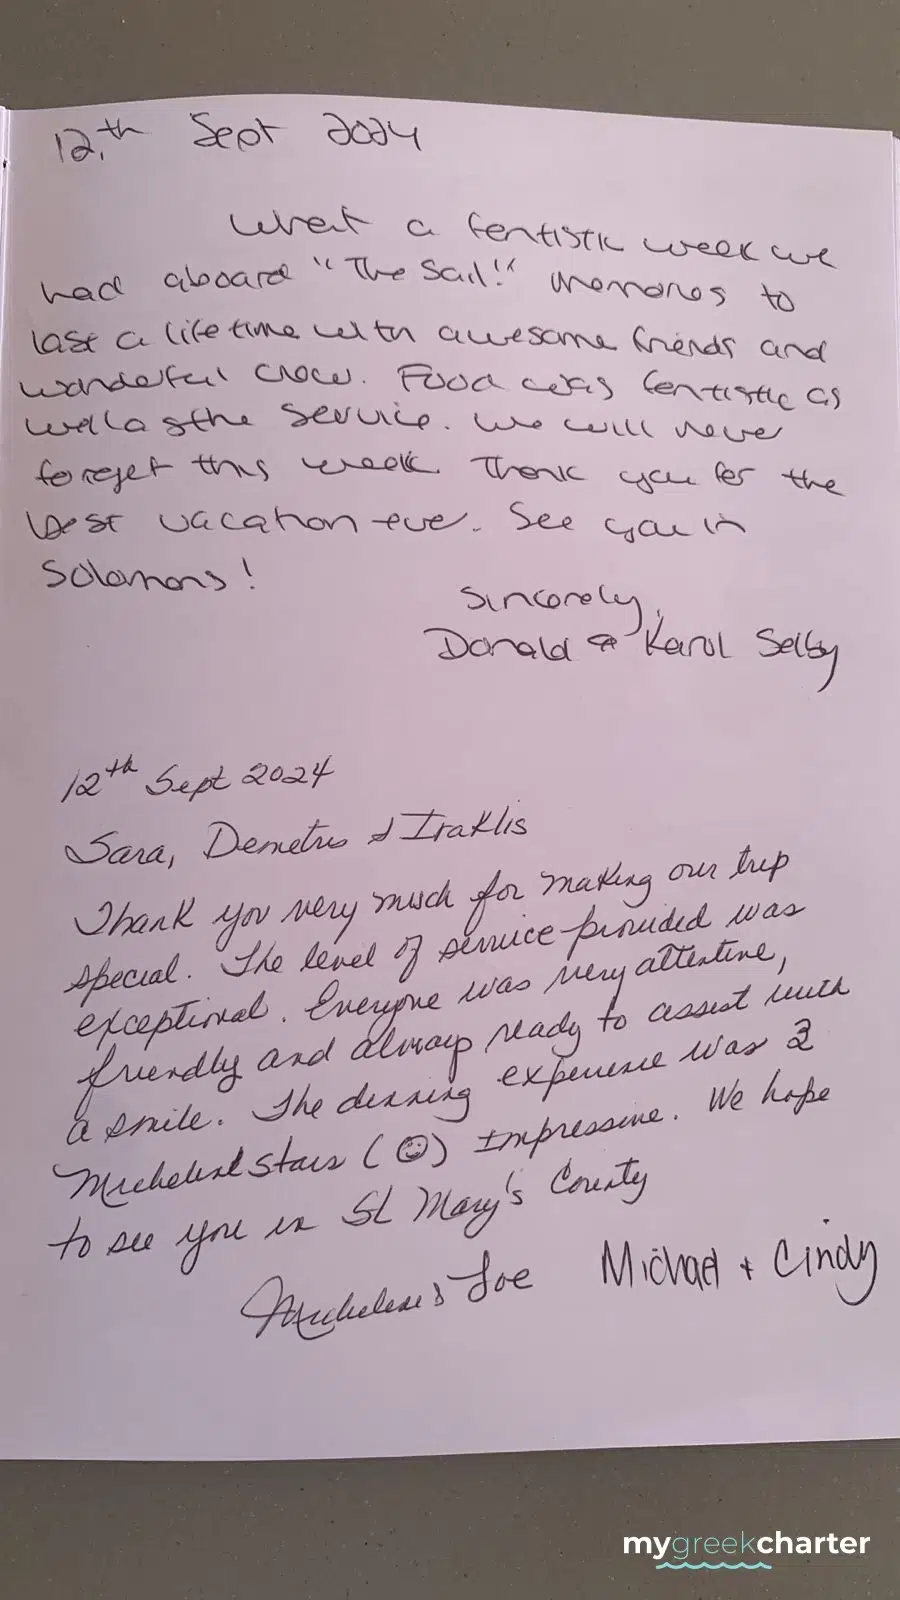 12.th Sept 2024
What a fentistic week we
had aboard "The Sail!" Memories to
last a life time with awesome friends and
wonderful crew. Food was fentistic as
well as the service. We will never
forget this week. Thank you for the
best vacation ever. See you in
Solomons!
Sincerely,
Donald & Karol Selby
12th Sept 2024
Sara, Demetris & Iraklis
Thank you very much for making our trip
special. The level of service provided was
exceptional. Everyone was very attentive,
friendly and always ready to assist with
a smile. The dinning experience was 3
Michelin Stars (☺) Impressive. We hope
to see you in St Mary's County
Michelene & Joe Michael + Cindy
mygreekcharter